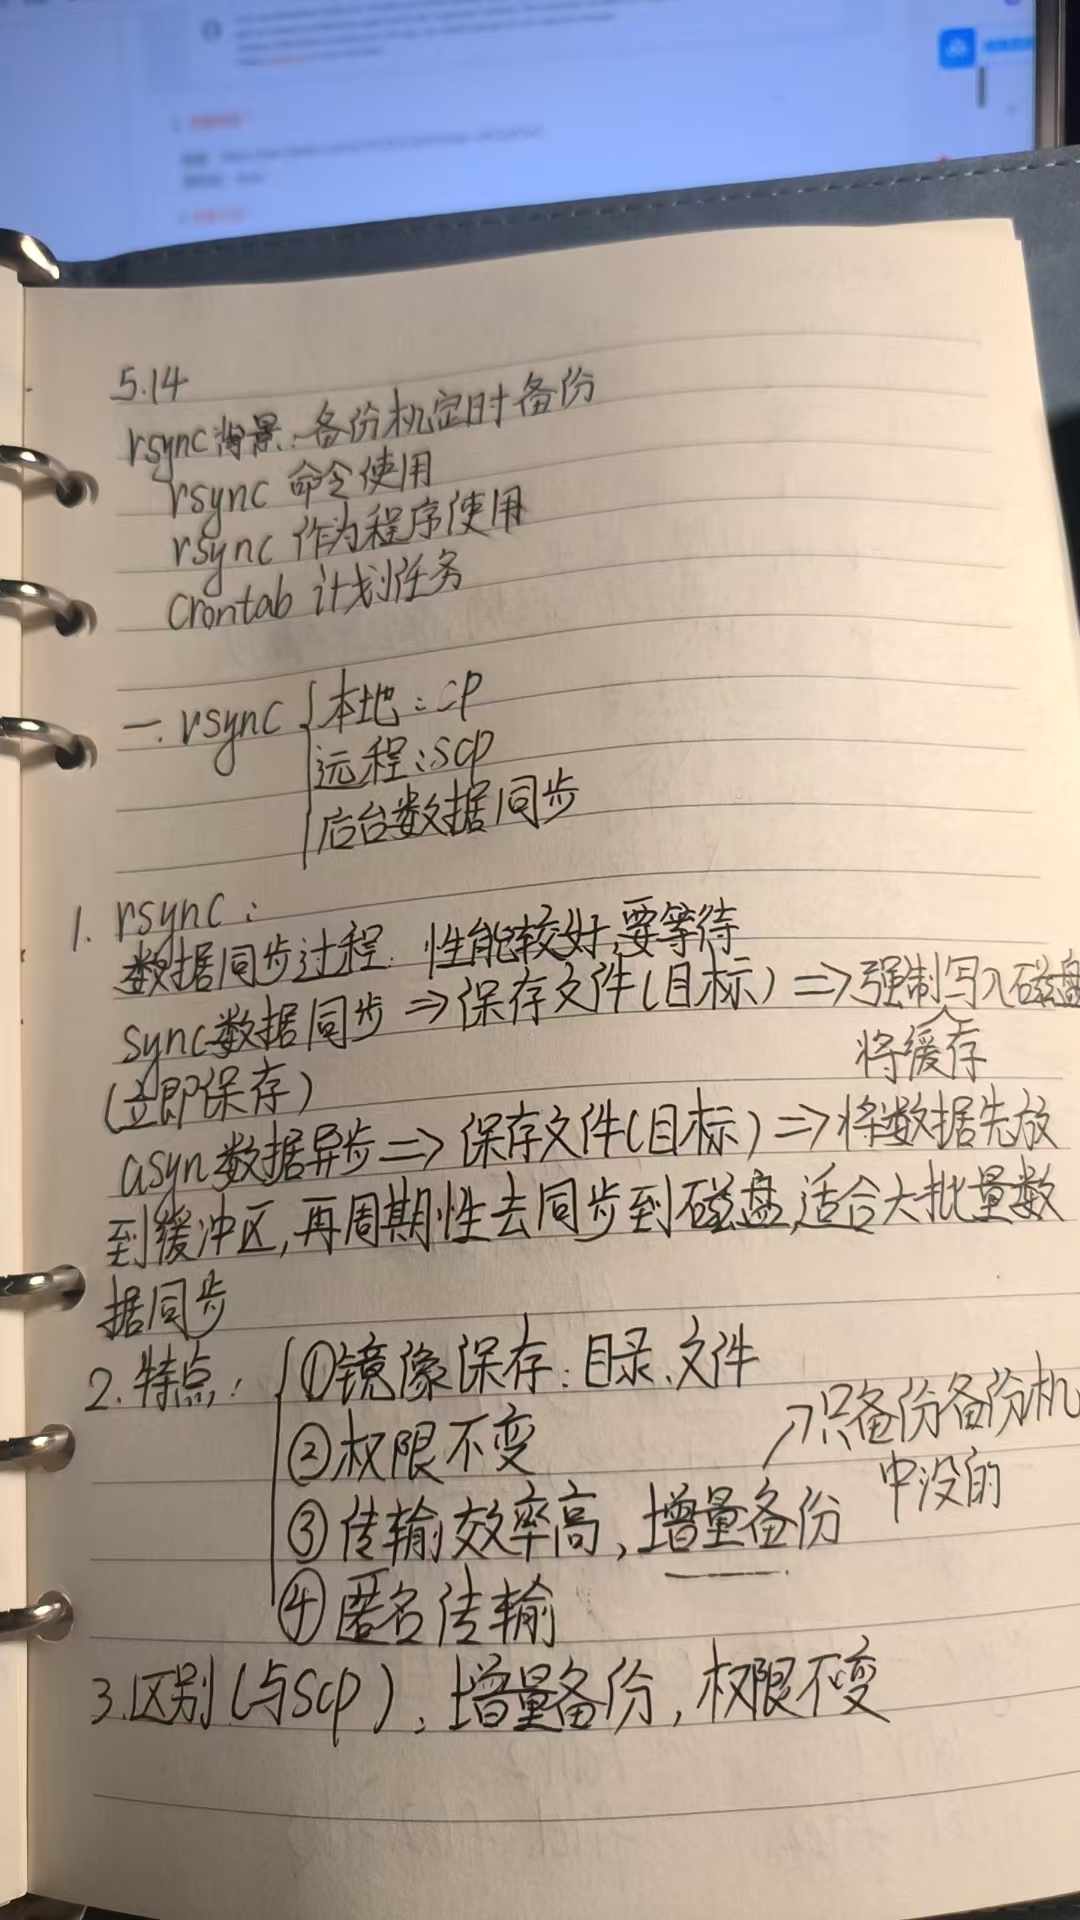 5.14
rsync背景:备份机定时备份
rsync 命令使用
rsync 作为程序使用
Crontab 计划任务
一. rsync { 本地:cp
远程:scp
后台数据同步
1. rsync:
数据同步过程. 性能较好,要等待
sync数据同步 => 保存文件(目标) => 强制写入磁盘
将缓存
(立即保存)
asyn数据异步 => 保存文件(目标) => 将数据先放
到缓冲区,再周期性去同步到磁盘,适合大批量数
据同步
2.特点: { ①镜像保存:目录、文件
②权限不变
↗只备份备份机
中没的
③传输效率高,增量备份
④匿名传输
3.区别(与scp):增量备份,权限不变